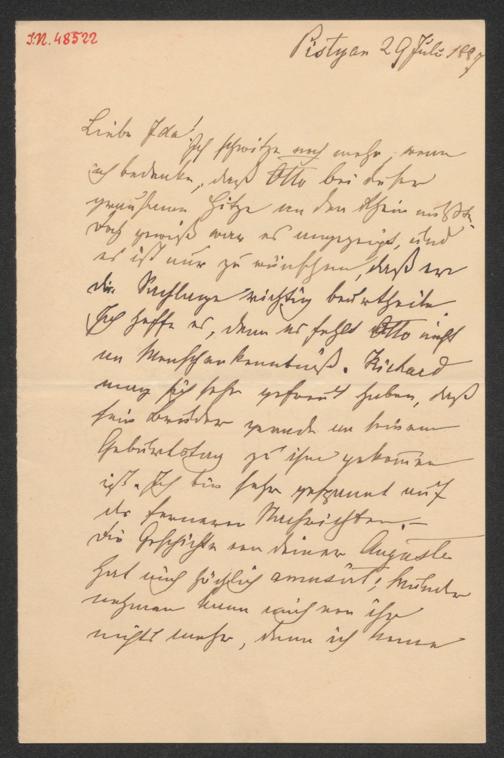 I.N. 48522
Pistyan 29 Juli 1897
Liebe Ida!
Ich schwitze noch mehr, wenn
ich bedenke, daß Otto bei dieser
grausamen Hitze an den Rhein mußte.
Doch gewiß war es angezeigt, und
es ist nur zu wünschen, daß er
die Sachlage richtig beurtheile.
Ich hoffe es, denn es fehlt Otto nicht
an Menschenkenntniß. Richard
mag sich sehr gefreut haben, daß
sein Bruder gerade an seinem
Geburtstag zu ihm gekommen
ist. Ich bin sehr gespannt auf
die ferneren Nachrichten. –
Die Geschichte von deiner Auguste
hat mich höchlich amusirt; Wunder
nehmen kann mich von ihr
nichts mehr, denn ich kenne